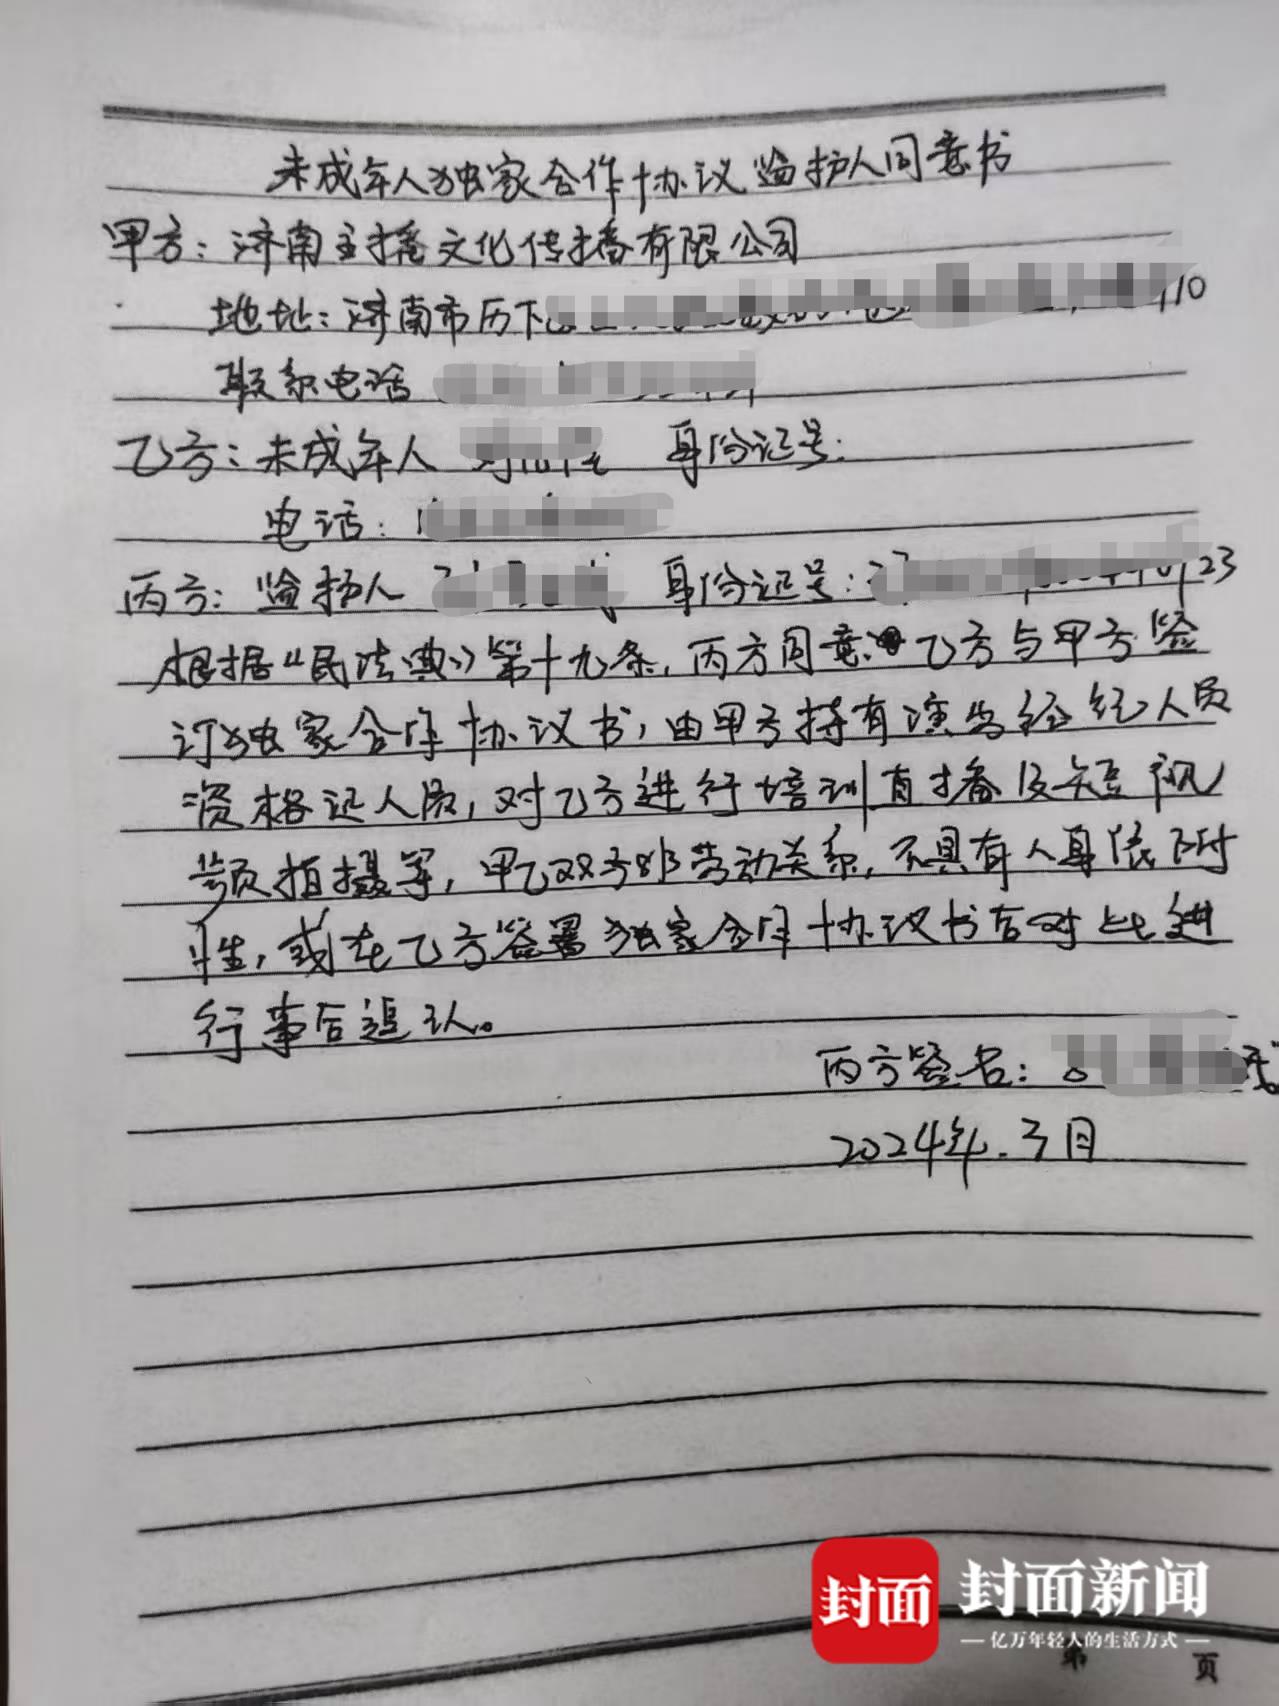 未成年人独家合作协议监护人同意书
甲方：济南主播文化传播有限公司
地址：济南市历下 110
联系电话
乙方：未成年人 身份证号：
电话：1
丙方：监护人 身份证号：37 23
根据《民法典》第十九条，丙方同意 乙方与甲方签
订独家合作协议书，由甲方持有演出经纪人员
资格证人员，对乙方进行培训直播及短视
频拍摄等，甲乙双方非劳动关系，不具有人身依附
性，或在乙方签署独家合作协议书后对此进
行事后追认。
丙方签名：
2024年.3月
封面 封面新闻
亿万年轻人的生活方式
第 页